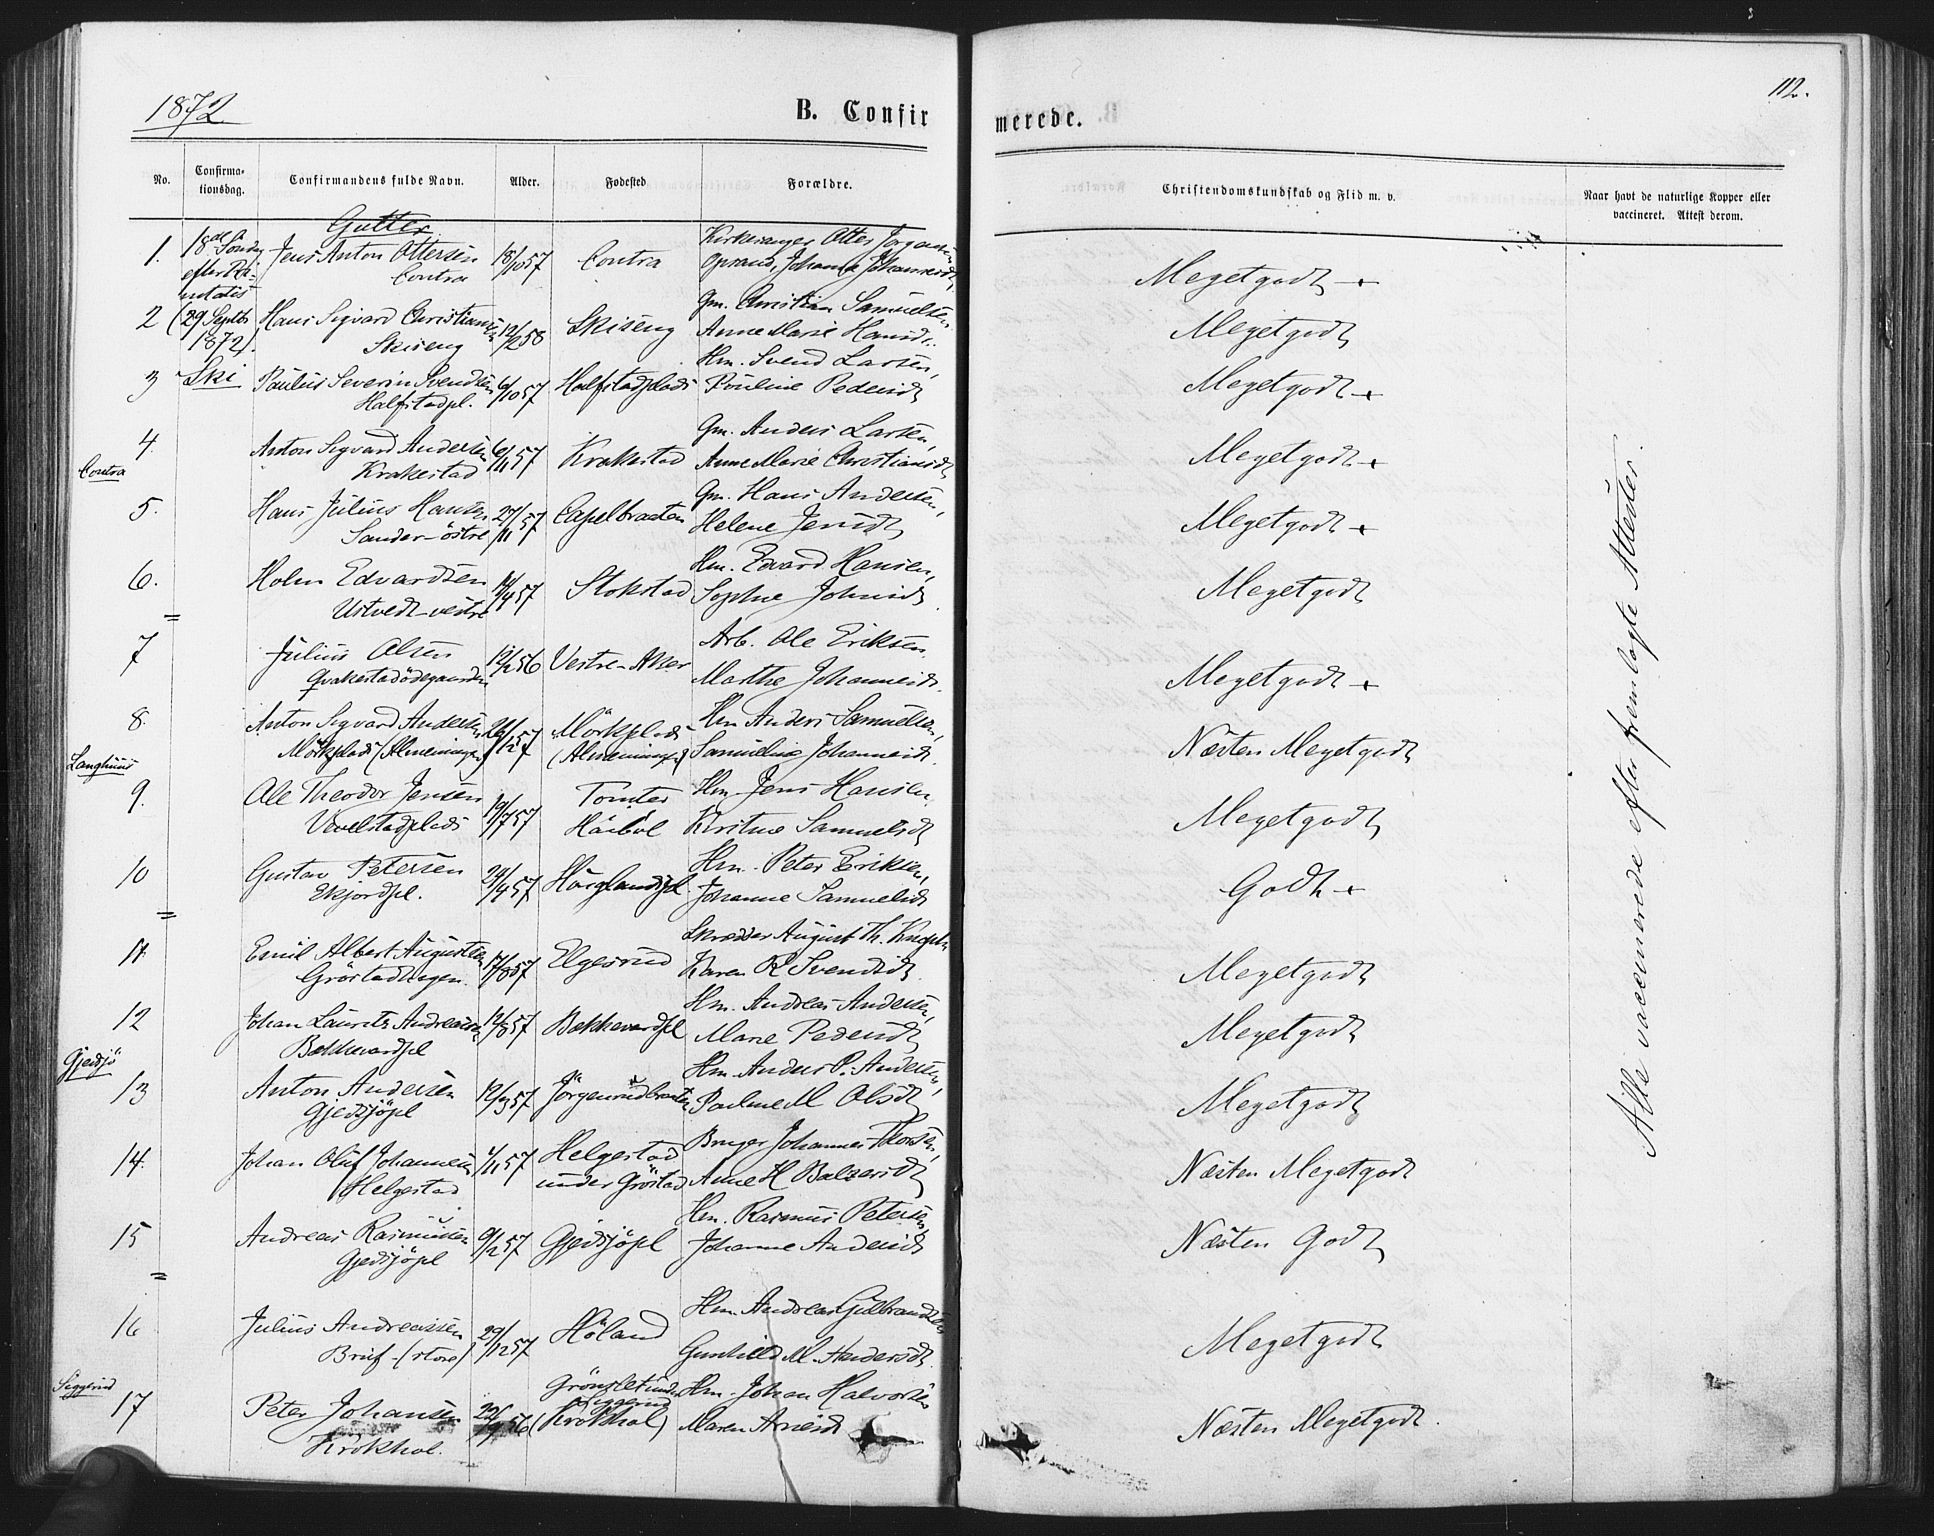 1872
B. Confirmerede.
112.
No.
Confirmationsdag.
Confirmandens fulde Navn.
Alder.
Fødested
Forældre.
Christendomskundskab og Flid m. v.
Naar havt de naturlige Kopper eller vaccineret. Attest derom.
Gutter
1. 18de Søndag efter Jens Anton Ottersen Contra 18/10 57 Contra Kirkesanger Otter Jørgensen Oprand, Johanne Johannesdt, Megetgodt +
2 (29 Septbr 1872). Hans Sigvard Christiansen Skiseng 12/2 58 Skiseng Gm. Christian Samuelsen Anne Marie Hansdt. Megetgodt
3 Ski Paulus Severin Svendsen Halfstadpl. 6/10 57 Halfstadplads Hm. Svend Larsen, Pouline Pedersdt Megetgodt +
4. Anton Sigvard Andersen Krakestad 6/11 57 Krakestad Gm. Anders Larsen, Anne Marie Christiansdt Megetgodt +
Contra
5. Hans Julius Hansen Sander-östre 27/11 57 Capelbraaten Gm. Hans Andersen, Helene Jensdt Megetgodt +
6. Holm Edvardsen Ustvedt-vestre 14/4 57 Stokstad Hm. Edvard Hansen, Sophie Johnsdt. Megetgodt
=
7 Julius Olsen Qvakestadödegaarden 12/2 56 Vestre-Aker Arb. Ole Eriksen. Marthe Johannesdt. Megetgodt +
8. Anton Sigvard Andersen Mörkplads (Almeningen) 26/12 57 Mörkplads (Almeningen) Hm Anders Samuelsen, Samueline Johannesdt. Næsten Megetgodt
Langhuus
9. Ole Theodor Jensen Vevelstadplads 19/7 57 Tomter Haibøl Hm Jens Hansen, Kristine Samuelsdt Megetgodt
10 Gustav Petersen Ekjordpl. 29/4 57 Hauglandspl. Hm. Peter Eriksen, Johanne Samuelsdt Godt +
=
11. Emil Albert Augustsen 17/8 57 Elgesrud Skrædder August Th. Karen K Svendsdt. Megetgodt
12 Johan Lauritz Andreassen Bækkevardpl 12/8 57 Bekkevardpl Hm. Andreas Andersen, Marie Pedersdt Megetgodt
Gjedsjö
13 Anton Andersen Gjedsjöpl 12/3 57 Jörgensrudbraaten Hm Anders P. Andersen, Pauline M Olsdt Megetgodt
14. Johan Oluf Johannesen Helgestad 1/11 57 Helgestad under Gröstad Bruger Johannes Thorsen, Anne H Balzersdt Næsten Megetgodt
15 Andreas Rasmussen Gjedsjöpl 9/12 57 Gjedsjöpl Hm. Rasmus Petersen, Johanne Andersdt Næsten Godt
=
16 Julius Andreassen Bruf-(store) 29/12 57 Höland Hm. Andreas Gulbrandsen Gunhild M. Andersdt. Megetgodt
Siggerud
17 Peter Johansen Krokhol. 22/9 56 Grönslet under Siggerud (Krokhol) Hm. Johan Halvorsen Maren Arnesdt Næsten Megetgodt.
Alle vaccinerede efter fremlagte Attester.